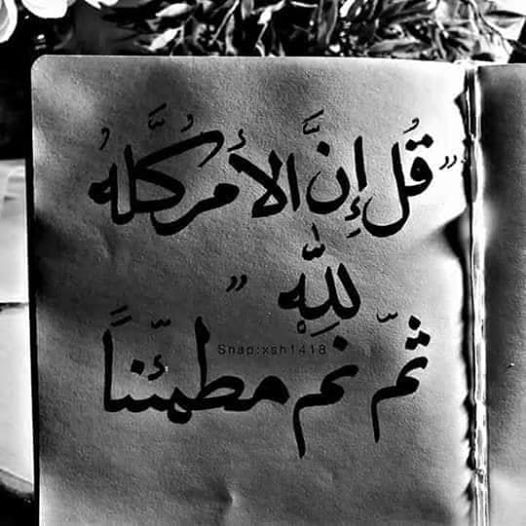 "قُل إِنَّ الأمرَ كُلَّهُ
لِلَّهِ"
ثمّ نم مطمئناً
Snap:xsh1418